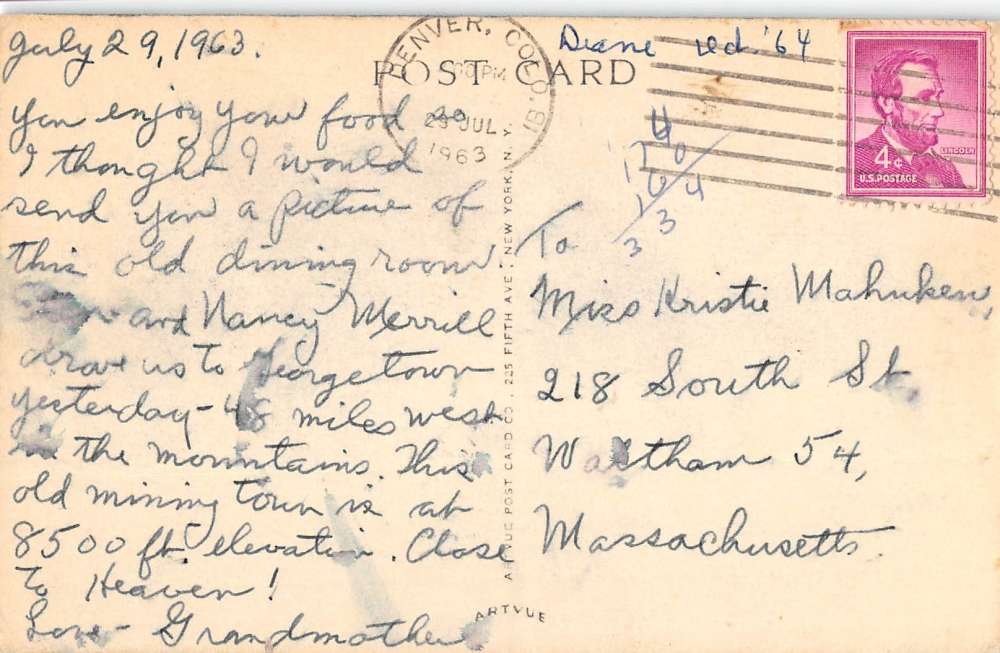 July 29, 1963.
You enjoy your food so
I thought I would
send you a picture of
this old dining room.
and Nancy Merrill
drove us to Georgetown
yesterday - 48 miles west
in the mountains. This
old mining town is at
8500 ft. elevation. Close
To Heaven!
Love - Grandmother
POST CARD
DENVER, COLO.
PM
29 JUL
1963
Diane red '64
LINCOLN
4¢
U.S. POSTAGE
To
Miss Kristie Mahnken,
218 South St.
Waltham 54,
Massachusetts.
ARTVUE POST CARD CO., 225 FIFTH AVE., NEW YORK, N. Y.
ARTVUE